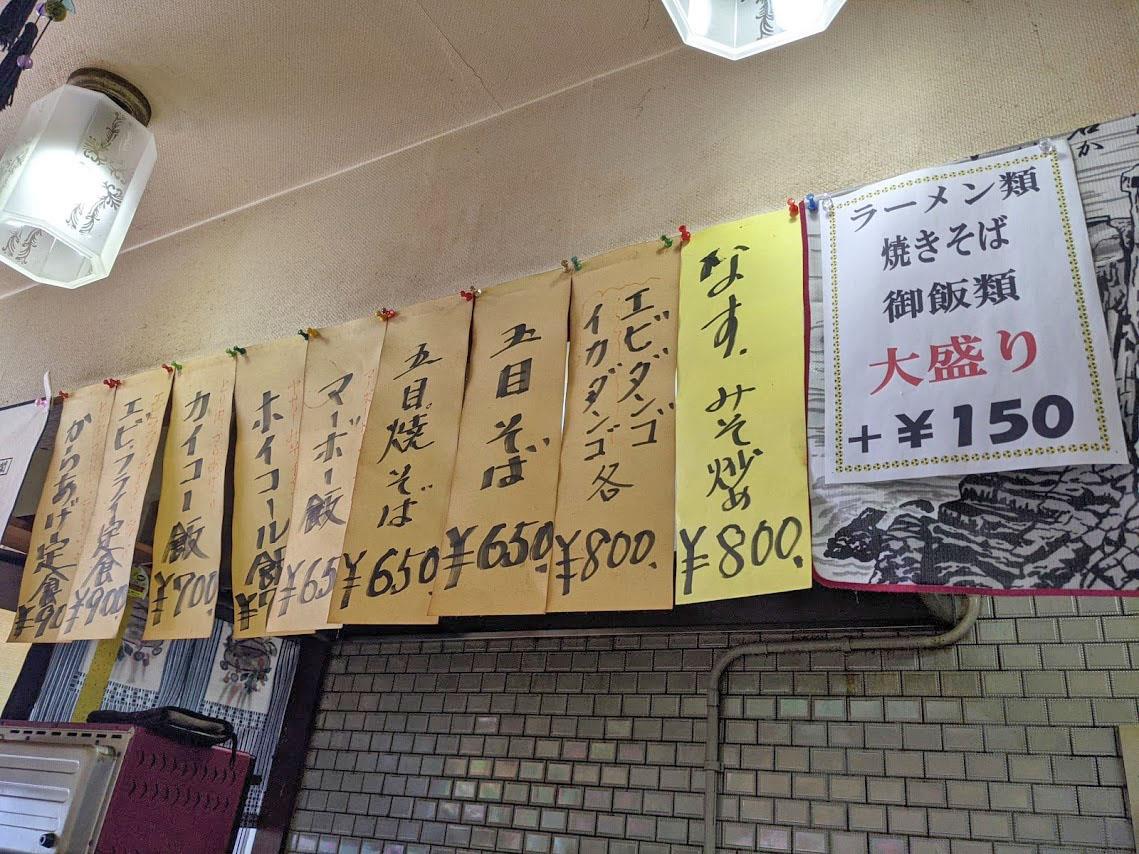 ラーメン類
焼きそば
御飯類
大盛り
+¥150
なす.みそ炒め
¥800.
エビダンゴ
イカダンゴ各
¥800.
五目そば
¥650
五目焼そば
¥650
マーボー飯
¥65
ホイコール飯
¥7
カイコー飯
¥700.
エビフライ定食
¥900
からあげ定食
¥90